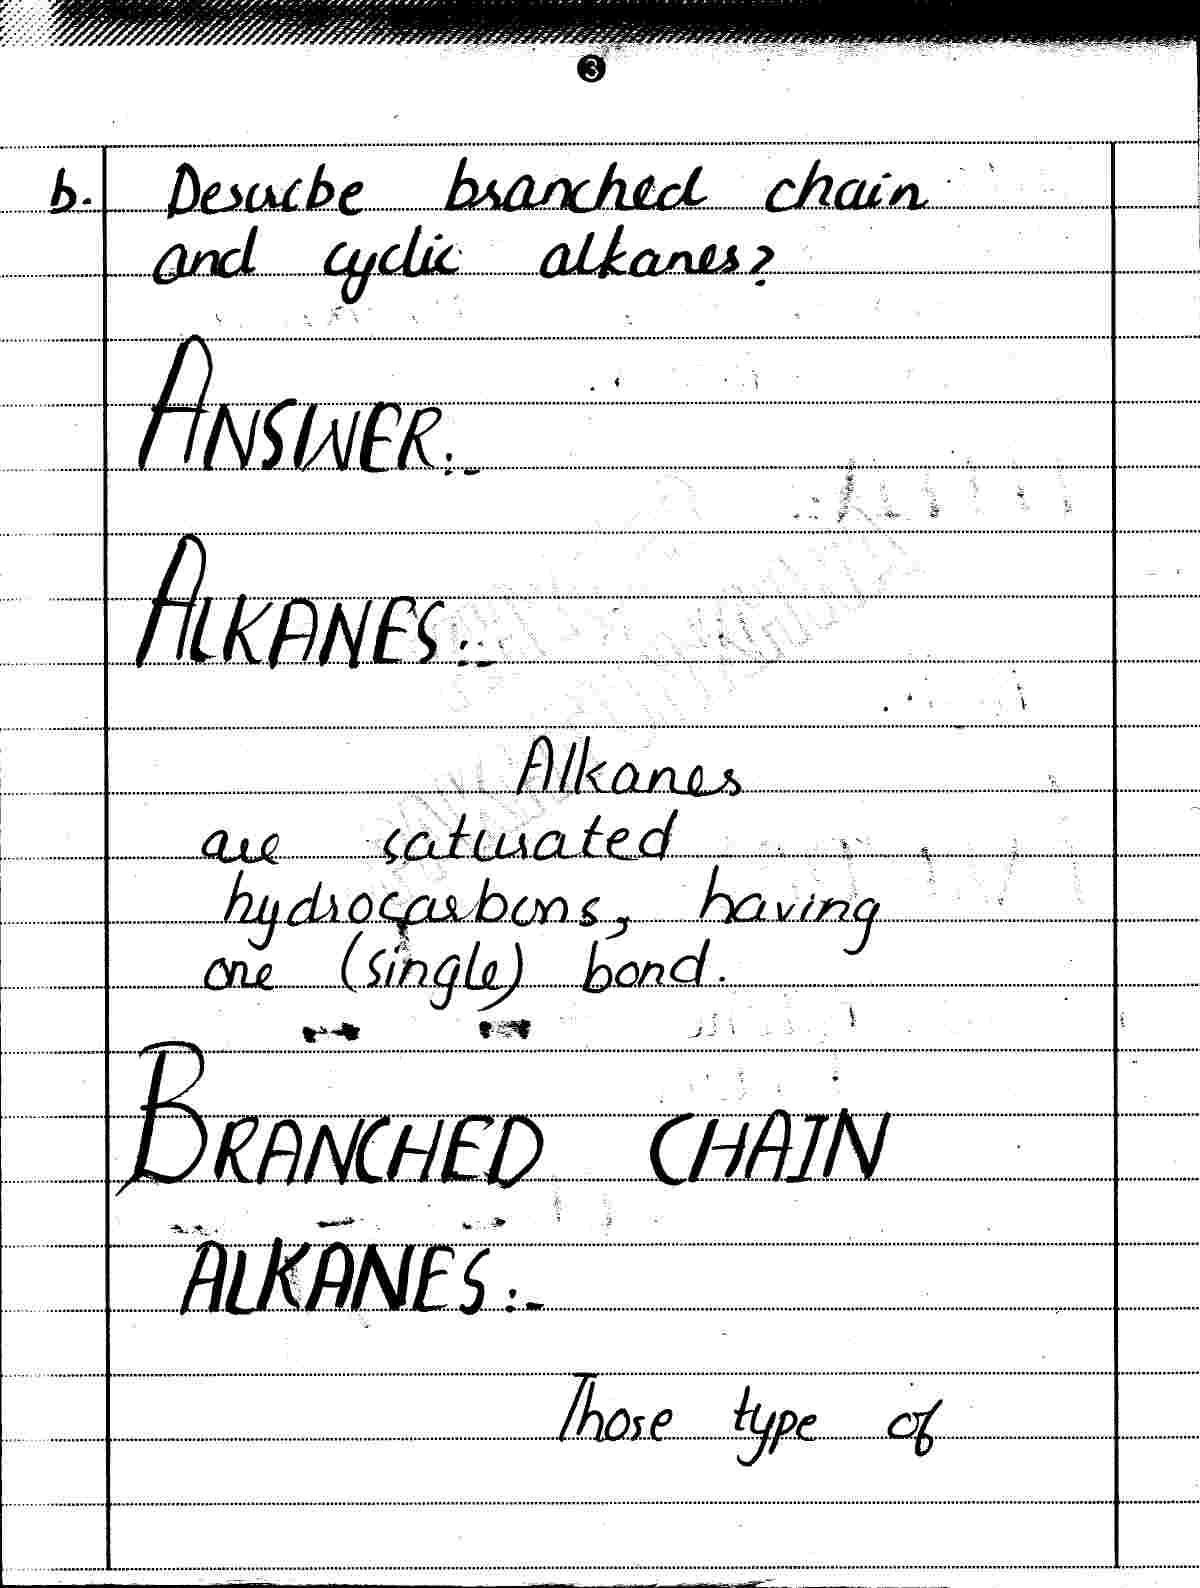 3
b. Describe branched chain
and cyclic alkanes?
ANSWER:-
ALKANES:-
Alkanes
are saturated
hydrocarbons, having
one (single) bond.
BRANCHED CHAIN
ALKANES:-
Those type of